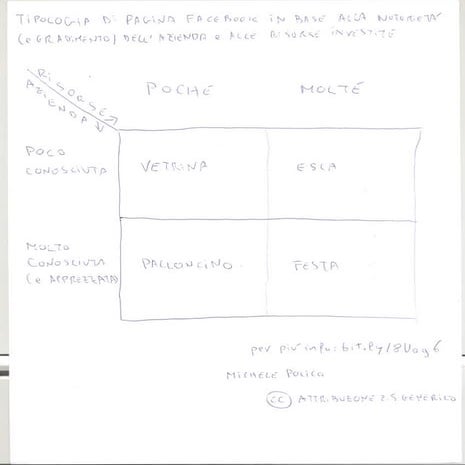 TIPOLOGIA DI PAGINA FACEBOOK IN BASE ALLA NOTORIETÀ
(e GRADIMENTO) DELL'AZIENDA e ALLE RISORSE INVESTITE
RISORSE
AZIENDA
POCHE
MOLTE
POCO
CONOSCIUTA
VETRINA
ESCA
MOLTO
CONOSCIUTA
(e APPREZZATA)
PALLONCINO
FESTA
per più info: bit.ly/8Uog6
MICHELE POLICO
CC ATTRIBUZIONE 2.5 GENERICO